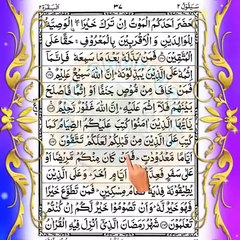 سَيَقُوْلُ ٢ ٣٧ اَلْبَقَرَة ٢
حَضَرَ اَحَدَكُمُ الْمَوْتُ اِنْ تَرَكَ خَيْرَا ۖۚ اۨلْوَصِيَّةُ
لِلْوَالِدَيْنِ وَالْاَقْرَبِيْنَ بِالْمَعْرُوْفِ ۚ حَقًّا عَلَى
الْمُتَّقِيْنَ ۞ فَمَنْۢ بَدَّلَهٗ بَعْدَ مَا سَمِعَهٗ فَاِنَّمَاۤ
اِثْمُهٗ عَلَى الَّذِيْنَ يُبَدِّلُوْنَهٗ ؕ اِنَّ اللّٰهَ سَمِيْعٌ عَلِيْمٌ ۞
فَمَنْ خَافَ مِنْ مُّوْصٍ جَنَفًا اَوْ اِثْمًا فَاَصْلَحَ
بَيْنَهُمْ فَلَاۤ اِثْمَ عَلَيْهِ ؕ اِنَّ اللّٰهَ غَفُوْرٌ رَّحِيْمٌ ۞
يٰۤاَيُّهَا الَّذِيْنَ اٰمَنُوْا كُتِبَ عَلَيْكُمُ الصِّيَامُ كَمَا
كُتِبَ عَلَى الَّذِيْنَ مِنْ قَبْلِكُمْ لَعَلَّكُمْ تَتَّقُوْنَ ۞
اَيَّامًا مَّعْدُوْدٰتٍ ؕ فَمَنْ كَانَ مِنْكُمْ مَّرِيْضًا اَوْ
عَلٰى سَفَرٍ فَعِدَّةٌ اَيَّامٍ اُخَرَ ؕ وَعَلَى الَّذِيْنَ
يُطِيْقُوْنَهٗ طَعَامُ مِسْكِيْنٍ ؕ فَمَنْ تَطَوَّعَ خَيْرًا
فَهُوَ خَيْرٌ لَّهٗ ؕ وَاَنْ تَصُوْمُوْا خَيْرٌ لَّكُمْ اِنْ كُنْتُمْ
تَعْلَمُوْنَ ۞ شَهْرُ رَمَضَانَ الَّذِيْۤ اُنْزِلَ فِيْهِ الْقُرْاٰنُ